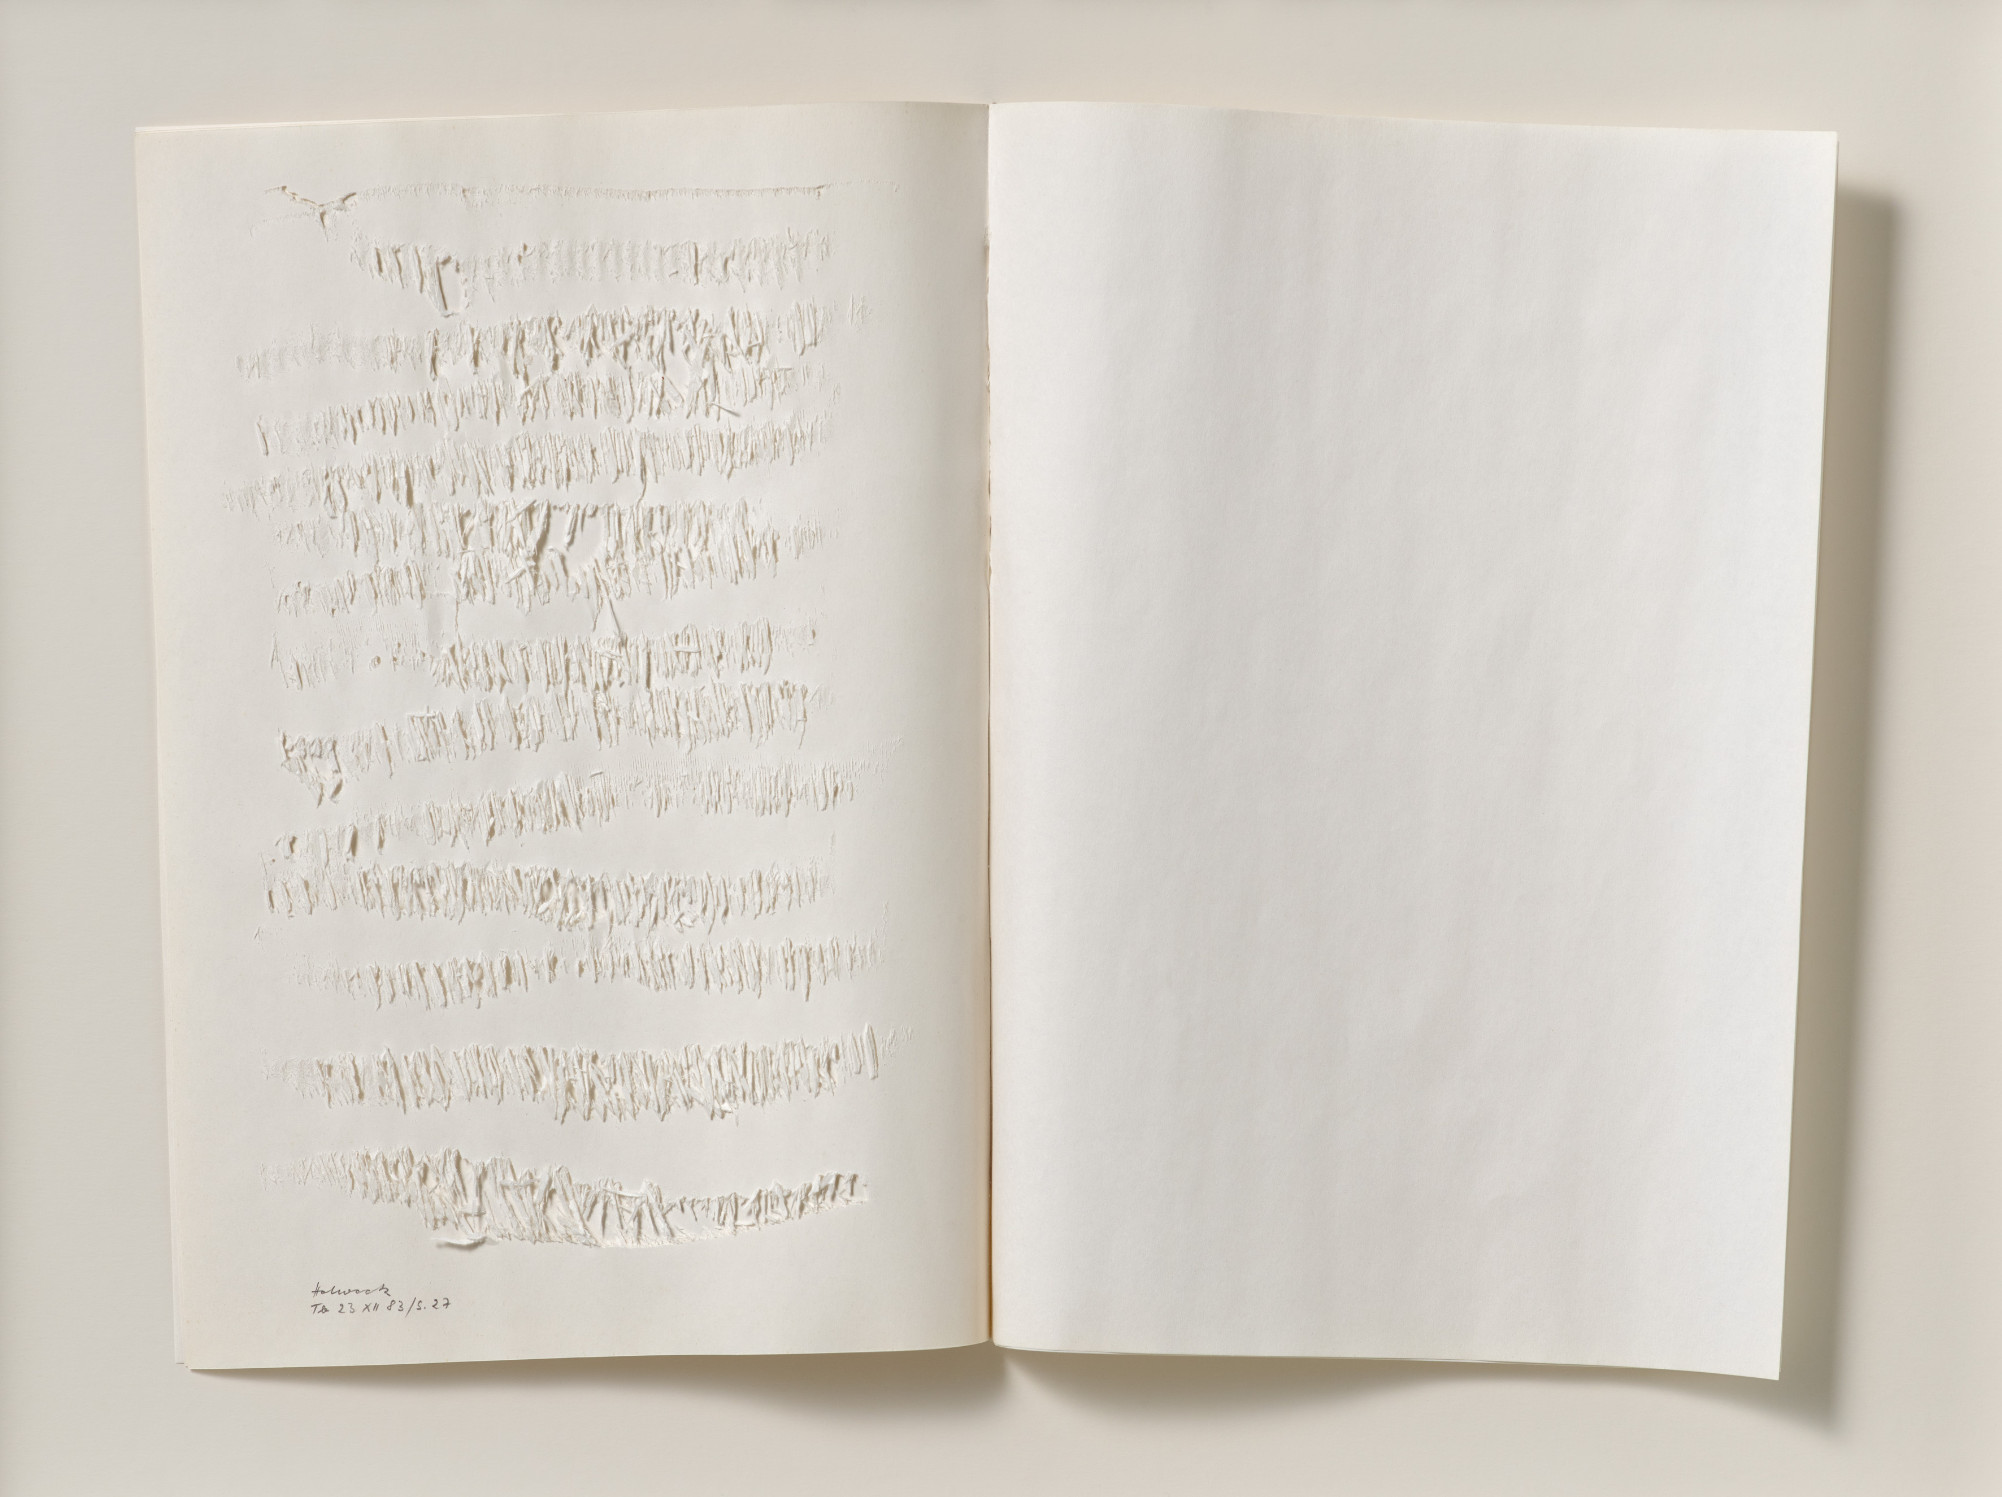 Holweck
TB 23 XII 83/S. 27